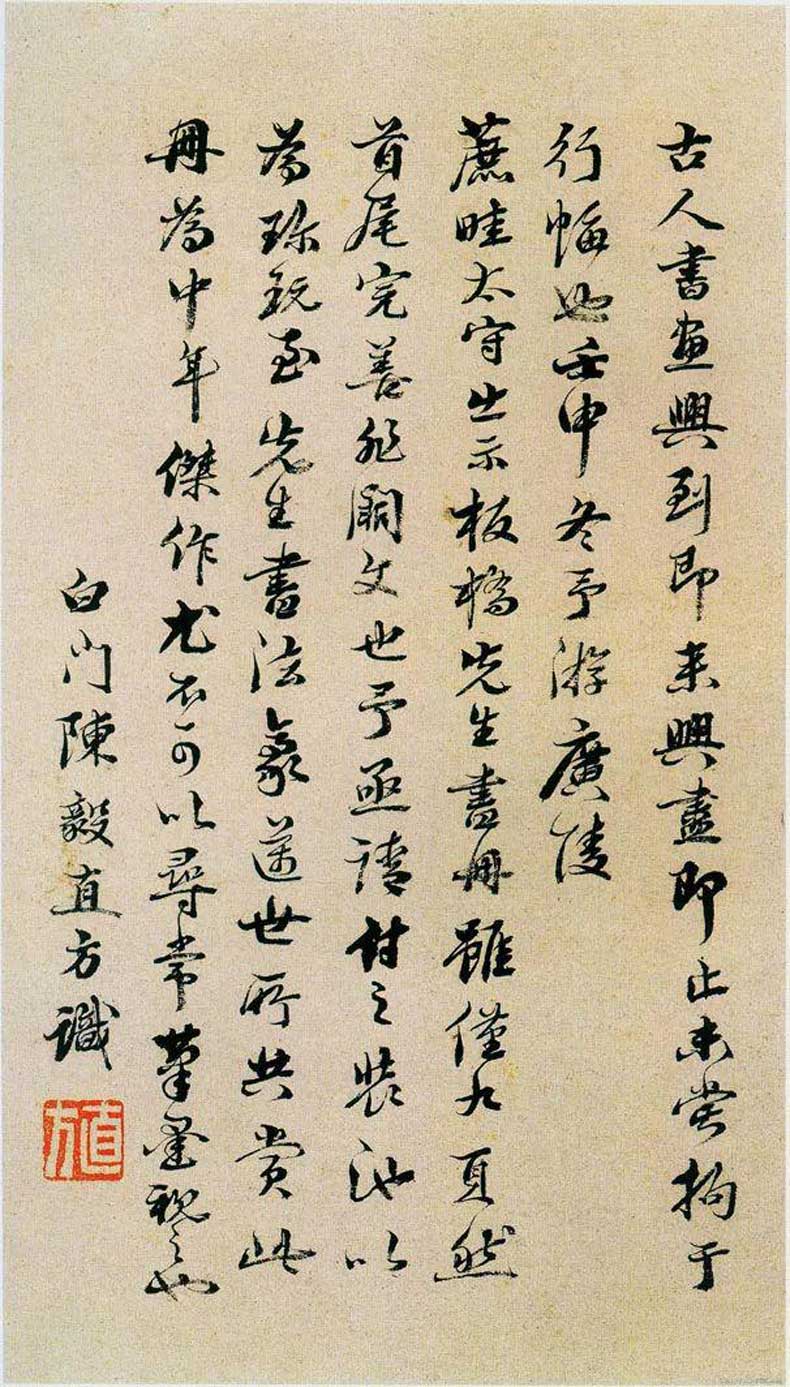 古人書畫興到即來興盡即止未嘗拘于
行幅也壬申冬予游廣陵
蔗畦太守出示板橋先生書冊雖僅九頁然
首尾完善非闕文也予亟請付之裝池以
為珍玩至先生書法篆蒞世所共賞此
冊為中年傑作尤不可以尋常筆墨視之也
白門陳毅直方識
直方